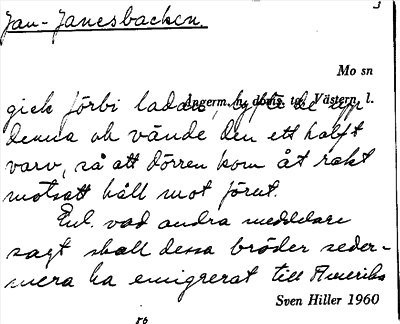 Jan-Janesbacken.
3
Mo sn
Ångerm. n. doms. tg. Västern. l.
gick förbi ladan, lyfte de upp
denna och vände den ett halft
varv, så att dörren kom åt rakt
motsatt håll mot förut.
Enl. vad andra meddelare
sagt skall dessa bröder seder-
mera ha emigrerat till Amerika
Sven Hiller 1960